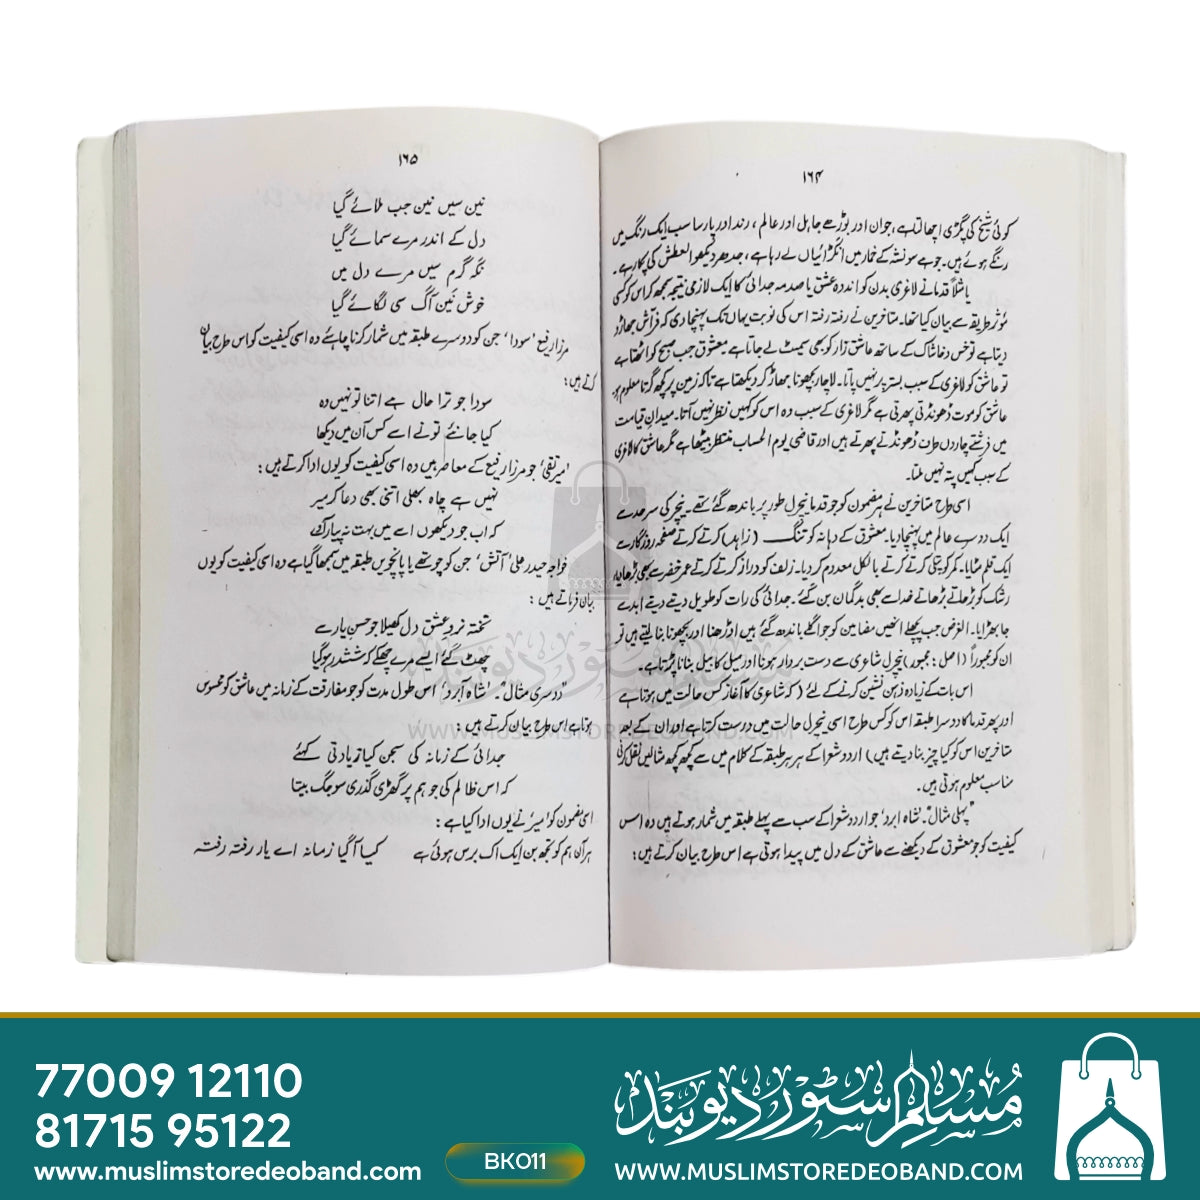 ۱۶۴
کوئی شیخ کی پگڑی اچھالتا ہے، جوان اور بوڑھے جاہل اور عالم، رند اور پارسا سب ایک رنگ میں
رنگے ہوئے ہیں۔ جو ہے سو نشہ کے خمار میں انگڑائیاں لے رہا ہے، جدھر دیکھو العطش کی پکار ہے۔
یا مثلاً قدما نے لاغری بدن کو اندوہ عشق یا صدمہ جدائی کا ایک لازمی نتیجہ سمجھ کر اس کو کسی
مؤثر طریقے سے بیان کیا تھا۔ متاخرین نے رفتہ رفتہ اس کی نوبت یہاں تک پہنچا دی کہ فراش جھاڑو
دیتا ہے تو خس و خاشاک کے ساتھ عاشق زار کو بھی سمیٹ لے جاتا ہے۔ معشوق جب صبح کو اٹھتا ہے
تو عاشق کو لاغری کے سبب بستر پر نہیں پاتا۔ لاچار بچھونا جھاڑ کر دیکھتا ہے تاکہ زمین پر کچھ گرتا معلوم ہو۔
عاشق کو موت ڈھونڈتی پھرتی ہے مگر لاغری کے سبب وہ اس کو کہیں نظر نہیں آتا۔ میدان قیامت
میں فرشتے چاروں طرف ڈھونڈتے پھرتے ہیں اور قاضی یوم الحساب منتظر بیٹھا ہے مگر عاشق کا لاغری
کے سبب کہیں پتہ نہیں ملتا۔
اسی طرح متاخرین نے ہر مضمون کو جو قدما نیچرل طور پر باندھ گئے تھے۔ نیچر کی سرحد سے
ایک دوسرے عالم میں پہنچا دیا۔ معشوق کے دہانہ کو تنگ (زاہد) کرتے کرتے صفحہ روزگار سے
ایک قلم مٹایا۔ کمر کو پتلی کرتے کرتے بالکل معدوم کر دیا۔ زلف کو دراز کرتے کرتے عمر خضر سے بھی بڑھا دیا۔
رشک کو بڑھاتے بڑھاتے خدا سے بھی بدگمان بن گئے۔ جدائی کی رات کو طویل دیتے دیتے ابد سے
جا بھڑایا۔ الغرض جب پچھلے انھیں مضامین کو جو اگلے باندھ گئے ہیں اوڑھنا اور بچھونا بنا لیتے ہیں تو
ان کو مجبوراً (اصل: مجبور) نیچرل شاعری سے دست بردار ہونا اور میل کا بیل بنانا پڑتا ہے۔
اس بات کے زیادہ ذہن نشین کرنے کے لئے (کہ شاعری کا آغاز کس حالت میں ہوتا ہے
اور پھر قدما کا دوسرا طبقہ اس کو کس طرح اسی نیچرل حالت میں درست کرتا ہے اور ان کے بعد
متاخرین اس کو کیا چیز بنا دیتے ہیں) اردو شعرا کے ہر ہر طبقہ کے کلام میں سے کچھ کچھ مثالیں نقل کرنی
مناسب معلوم ہوتی ہیں۔
"پہلی مثال"۔ شاہ ابرو، جو اردو شعرا کے سب سے پہلے طبقہ میں شمار ہوتے ہیں وہ اس
کیفیت کو جو معشوق کے دیکھنے سے عاشق کے دل میں پیدا ہوتی ہے اس طرح بیان کرتے ہیں:
۱۶۵
نین سیں نین جب ملائے گیا
دل کے اندر مرے سمائے گیا
نگہ گرم سیں مرے دل میں
خوش نین آگ سی لگائے گیا
مرزا رفیع 'سودا' جن کو دوسرے طبقہ میں شمار کرنا چاہئے وہ اسی کیفیت کو اس طرح بیان
کرتے ہیں:
سودا جو ترا حال ہے اتنا تو نہیں وہ
کیا جانئے تو نے اسے کس آن میں دیکھا
'میر تقی' جو مرزا رفیع کے معاصر ہیں وہ اسی کیفیت کو یوں ادا کرتے ہیں:
نہیں ہے چاہ بھلی اتنی بھی دعا کر میر
کہ اب جو دیکھوں اسے میں بہت نہ پیار آئے
خواجہ حیدر علی 'آتش' جن کو چوتھے یا پانچویں طبقہ میں سمجھا گیا ہے وہ اسی کیفیت کو یوں
بیان فرماتے ہیں:
تختہ نرد عشق دل کھیلا جو حسن یار سے
چھٹ گئے ایسے مرے چھکے کہ ششدر ہوگیا
"دوسری مثال"۔ 'شاہ آبرو' اس طول مدت کو جو مفارقت کے زمانہ میں عاشق کو محسوس
ہوتا ہے اس طرح بیان کرتے ہیں:
جدائی کے زمانہ کی سجن کیا زیادتی کہئے
کہ اس ظالم کی جو ہم پر گھڑی گذری سو جگ بیتا
اسی مضمون کو 'میر' نے یوں ادا کیا ہے:
ہر آن ہم کو تجھ بن ایک اک برس ہوئی ہے کیا آگیا زمانہ اے یار رفتہ رفتہ
مسلم سٹور دیوبند
WWW.MUSLIMSTOREDEOBAND.COM
77009 12110
81715 95122
www.muslimstoredeoband.com
BK011
مسلم سٹور دیوبند
WWW.MUSLIMSTOREDEOBAND.COM